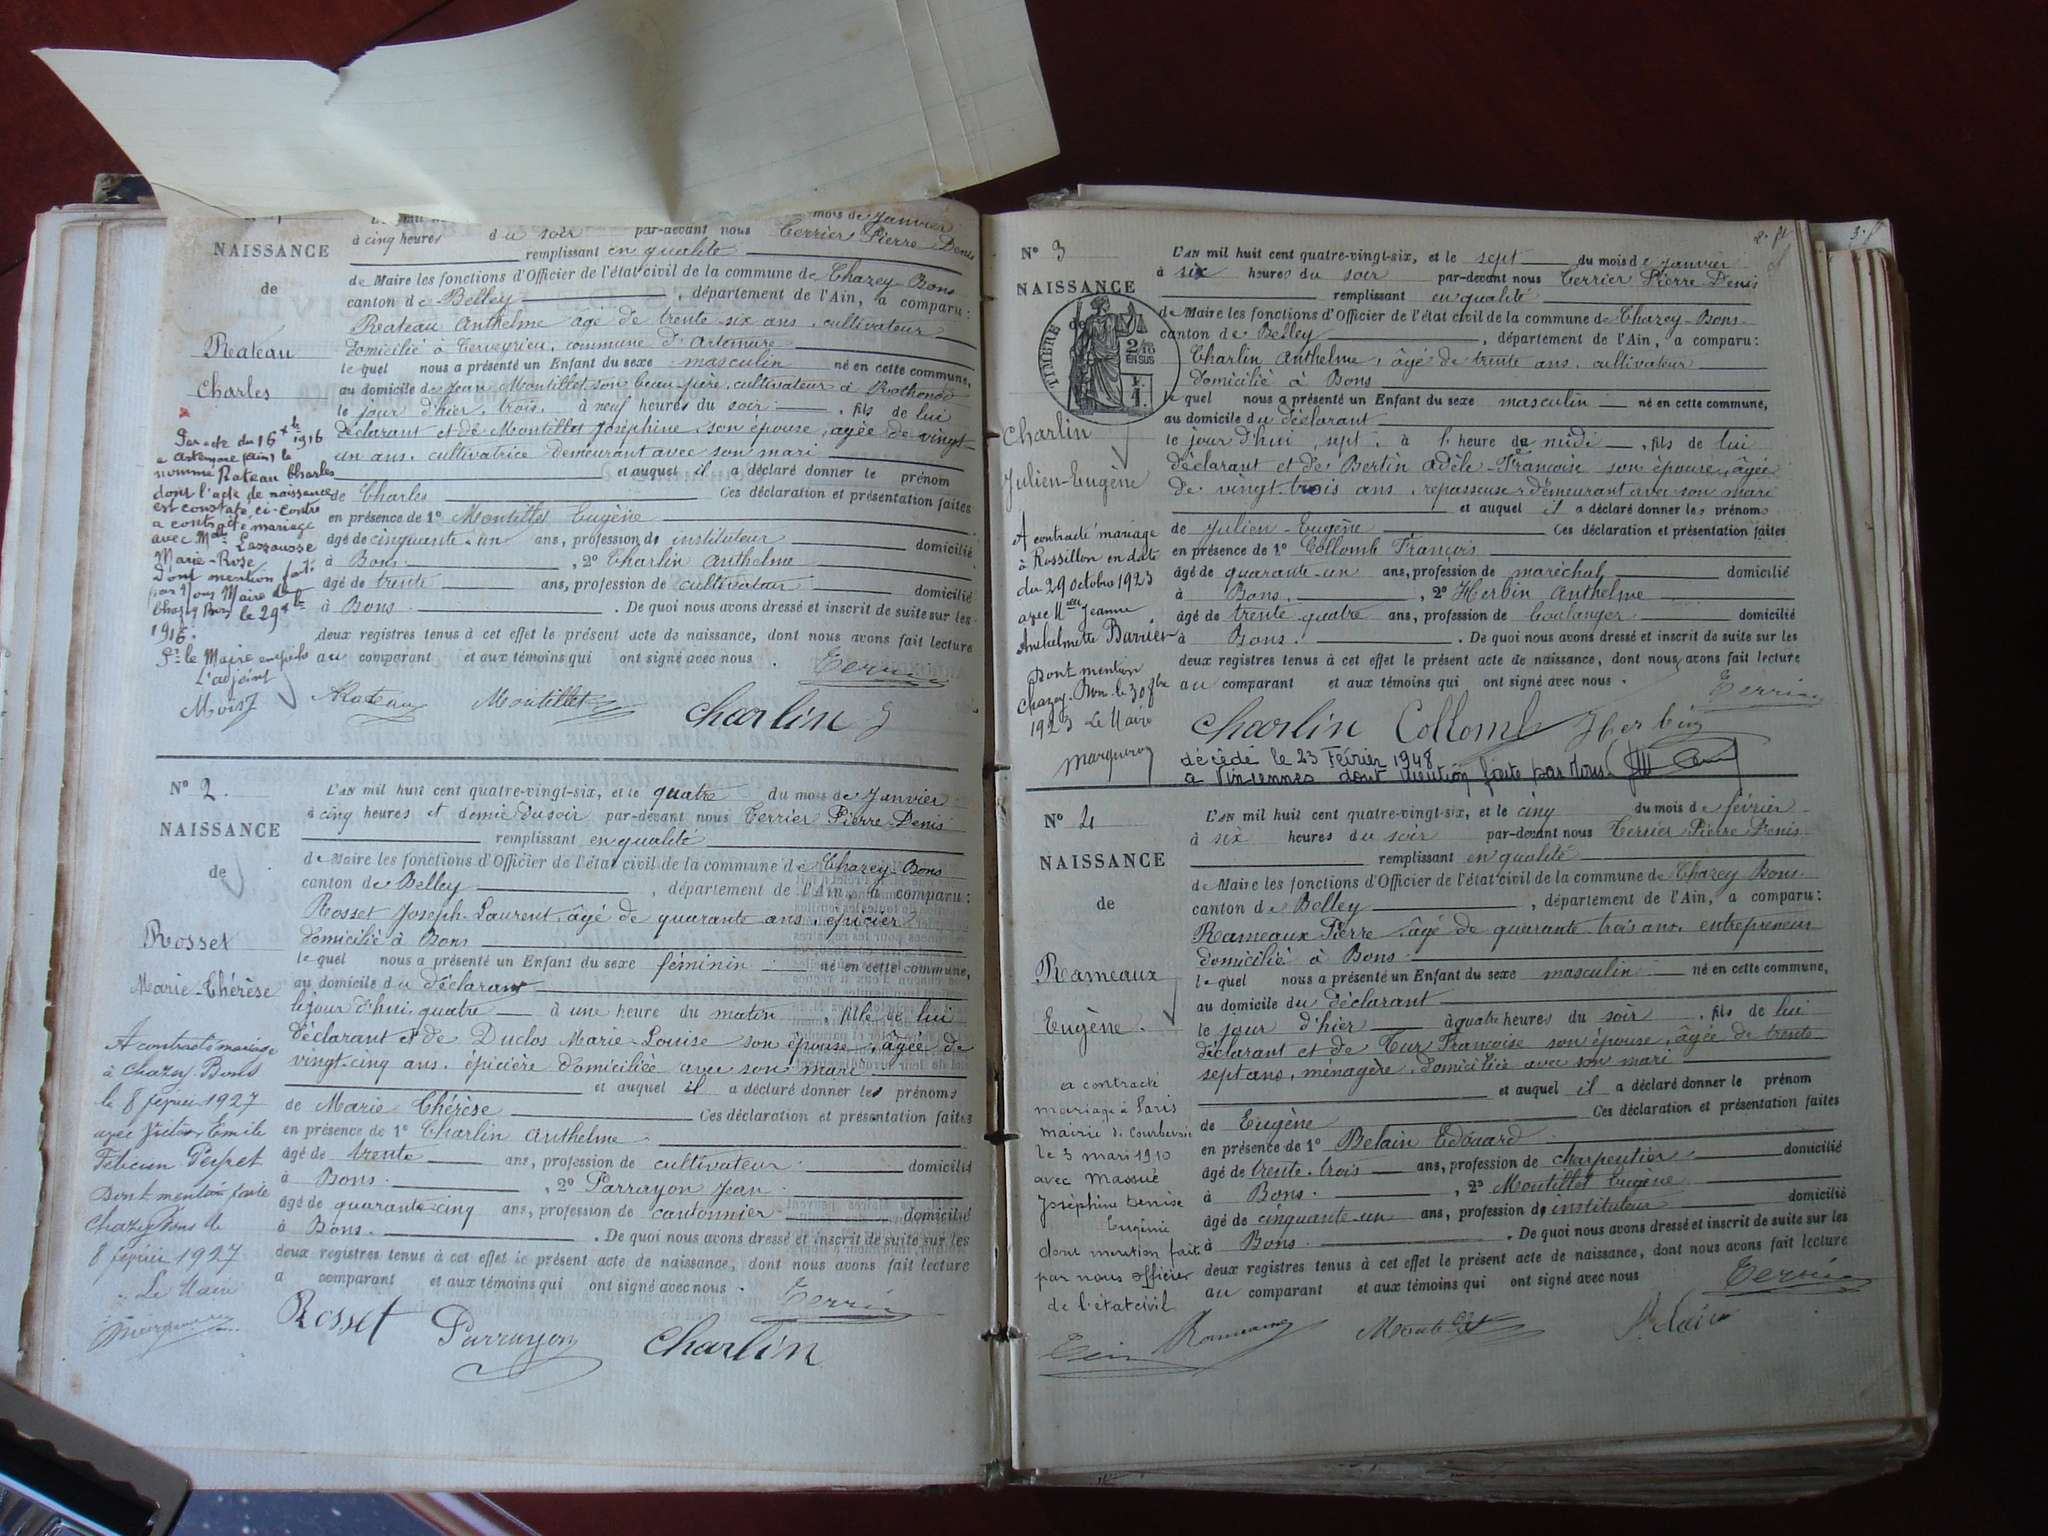 mois de Janvier
NAISSANCE
à cinq heures du soir par-devant nous Terrier Pierre Denis
remplissant en qualité
de
de Maire les fonctions d'Officier de l'état civil de la commune de Chazey Bons
canton de Belley, département de l'Ain, a comparu:
Rateau Anthelme agé de trente six ans, cultivateur
Rateau
domicilié à Cerveyrieu, commune d'Artemare
le quel nous a présenté un Enfant du sexe masculin né en cette commune,
Charles
au domicile de Jean Montillet son beau-père, cultivateur à Rothonod
le jour d'hier, trois, à neuf heures du soir, fils de lui
déclarant et de Montillet Joséphine, son épouse, agée de vingt-
un ans, cultivatrice demeurant avec son mari
et auquel il a déclaré donner le prénom
de Charles Ces déclaration et présentation faites
en présence de 1° Montillet Eugène
âgé de cinquante-un ans, profession de instituteur domicilié
à Bons, 2° Charlin Anthelme
âgé de trente ans, profession de cultivateur domicilié
à Bons. De quoi nous avons dressé et inscrit de suite sur les
deux registres tenus à cet effet le présent acte de naissance, dont nous avons fait lecture
au comparant et aux témoins qui ont signé avec nous.
Terrier
Rateau Montillet Charlin
Par acte du 16 Xbre 1916
à Artemare (Ain) le
nommé Rateau Charles
dont l'acte de naissance
est constaté ci-contre
a contracté mariage
avec Melle
Marie-Rose
Dont mention faite
par Nous Maire de
Chazey Bons le 29 Xbre
1916.
Pr le Maire empêché
L'adjoint
N° 2.
NAISSANCE
de
Rosset
Marie-Thérèse
L'AN mil huit cent quatre-vingt-six, et le quatre du mois de Janvier
à cinq heures et demie du soir par-devant nous Terrier Pierre-Denis
remplissant en qualité
de Maire les fonctions d'Officier de l'état civil de la commune de Chazey-Bons
canton de Belley, département de l'Ain, a comparu:
Rosset Joseph-Laurent, âgé de quarante ans, épicier
domicilié à Bons
le quel nous a présenté un Enfant du sexe féminin né en cette commune,
au domicile du déclarant
le jour d'hui, quatre à une heure du matin, fille de lui
déclarant et de Duclos Marie-Louise son épouse, âgée de
vingt-cinq ans, épicière domiciliée avec son mari
et auquel il a déclaré donner les prénoms
de Marie Thérèse Ces déclaration et présentation faites
en présence de 1° Charlin Anthelme
âgé de trente ans, profession de cultivateur domicilié
à Bons, 2° Parrayon Jean
âgé de quarante cinq ans, profession de cantonnier domicilié
à Bons. De quoi nous avons dressé et inscrit de suite sur les
deux registres tenus à cet effet le présent acte de naissance, dont nous avons fait lecture
a comparant et aux témoins qui ont signé avec nous.
Terrier
Rosset Parrayon Charlin
A contracté mariage
à Chazey Bons
le 8 février 1927
avec Victor Emile
Félicien Peyret
Dont mention faite
Chazey Bons le
8 février 1927
Le Maire
N° 3
NAISSANCE
de
TIMBRE
2/10
EN SUS
Charlin
Julien-Eugène
L'AN mil huit cent quatre-vingt-six, et le sept du mois de janvier
à six heures du soir par-devant nous Terrier Pierre-Denis
remplissant en qualité
de Maire les fonctions d'Officier de l'état civil de la commune de Chazey-Bons
canton de Belley, département de l'Ain, a comparu:
Charlin Anthelme, âgé de trente ans, cultivateur
domicilié à Bons
le quel nous a présenté un Enfant du sexe masculin né en cette commune,
au domicile du déclarant
le jour d'hui, sept, à l'heure de midi, fils de lui
déclarant et de Bertin Adèle-Françoise son épouse, âgée
de vingt-trois ans, repasseuse demeurant avec son mari
et auquel il a déclaré donner les prénoms
de Julien-Eugène Ces déclaration et présentation faites
en présence de 1° Collomb François
âgé de quarante-un ans, profession de maréchal domicilié
à Bons, 2° Herbin Anthelme
âgé de trente quatre ans, profession de boulanger domicilié
à Bons. De quoi nous avons dressé et inscrit de suite sur les
deux registres tenus à cet effet le présent acte de naissance, dont nous avons fait lecture
au comparant et aux témoins qui ont signé avec nous.
Terrier
Charlin Collomb Herbin
décédé le 23 Février 1948
à Vincennes dont mention faite par Nous
A contracté mariage
à Rossillon en date
du 29 octobre 1923
avec Melle Jeanne
Anthelmette Barrier
Dont mention
Chazey-Bons le 30 8bre
1923 Le Maire
N° 4
NAISSANCE
de
Rameaux
Eugène.
L'AN mil huit cent quatre-vingt-six, et le cinq du mois de février
à six heures du soir par-devant nous Terrier Pierre Denis
remplissant en qualité
de Maire les fonctions d'Officier de l'état civil de la commune de Chazey Bons
canton de Belley, département de l'Ain, a comparu:
Rameaux Pierre, âgé de quarante-trois ans, entrepreneur
domicilié à Bons
le quel nous a présenté un Enfant du sexe masculin né en cette commune,
au domicile du déclarant
le jour d'hier à quatre heures du soir, fils de lui
déclarant et de Tur Françoise son épouse, âgée de trente-
sept ans, ménagère, domiciliée avec son mari
et auquel il a déclaré donner le prénom
de Eugène Ces déclaration et présentation faites
en présence de 1° Belain Edouard
âgé de trente-trois ans, profession de charpentier domicilié
à Bons, 2° Montillet Eugène
âgé de cinquante-un ans, profession de instituteur domicilié
à Bons. De quoi nous avons dressé et inscrit de suite sur les
deux registres tenus à cet effet le présent acte de naissance, dont nous avons fait lecture
au comparant et aux témoins qui ont signé avec nous
Terrier
Rameaux Montillet Belain
a contracté
mariage à Paris
mairie de Courbevoie
le 3 mars 1910
avec Massué
Joséphine Denise
Eugénie
dont mention faite
par nous officier
de l'état civil